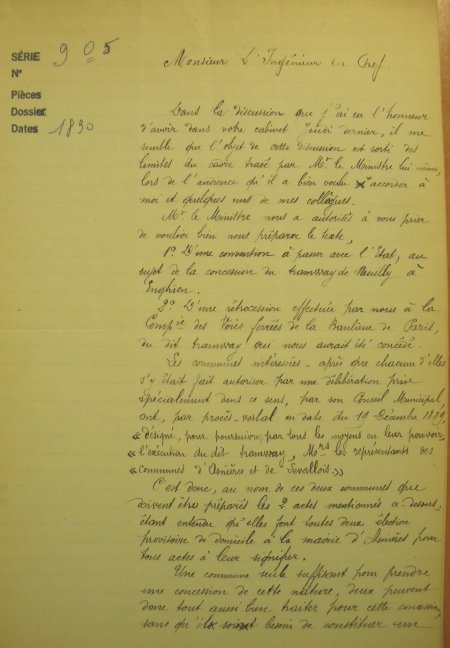 SÉRIE 905
N°
Pièces
Dossier
Dates 1890
Monsieur L'Ingénieur en Chef.
Dans la discussion que j'ai eu l'honneur
d'avoir dans votre cabinet jeudi dernier, il me
semble que l'objet de cette discussion est sorti des
limites du cadre tracé par Mr. le Ministre lui même,
lors de l'audience qu'il a bien voulu accorder à
moi et quelques uns de mes collègues.
Mr. le Ministre nous a autorisés à vous prier
de vouloir bien nous préparer le texte,
1° D'une convention à passer avec l'Etat, au
sujet de la concession du tramway de Neuilly à
Enghien.
2° D'une rétrocession effectuée par nous à la
Compie des Voies ferrées de la Banlieue de Paris,
du dit tramway qui nous aurait été concédé.
Les communes intéressées, après que chacune d'elles
s'y était fait autoriser par une délibération prise
spécialement dans ce sens, par son Conseil Municipal,
ont, par procès-verbal en date du 19 Décembre 1889,
« désigné, pour poursuivre, par tous les moyens en leur pouvoir,
« l'exécution du dit tramway, Mrs les représentants des
« communes d'Asnières et de Levallois. »
C'est donc, au nom de ces deux communes que
doivent être préparés les 2 actes mentionnés ci-dessus,
étant entendu qu'elles font toutes deux élection
provisoire de domicile à la mairie d'Asnières pour
tous actes à leur signifier.
Une commune seule suffisant pour prendre
une concession de cette nature, deux peuvent
donc tout aussi bien traiter pour cette concession,
sans qu'il soit besoin de constituer un